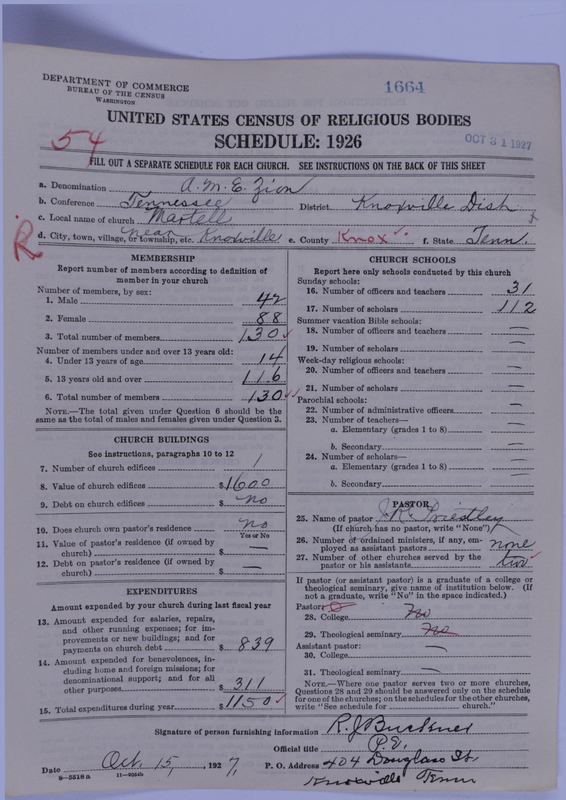 DEPARTMENT OF COMMERCE
BUREAU OF THE CENSUS
WASHINGTON
1664
UNITED STATES CENSUS OF RELIGIOUS BODIES
SCHEDULE: 1926
OCT 31 1927
54
FILL OUT A SEPARATE SCHEDULE FOR EACH CHURCH. SEE INSTRUCTIONS ON THE BACK OF THIS SHEET
a. Denomination A.M.E. Zion
b. Conference Tennessee District Knoxville Dist
c. Local name of church Martell
d. City, town, village, or township, etc. near Knoxville e. County Knox f. State Tenn.
R
MEMBERSHIP
Report number of members according to definition of member in your church
Number of members, by sex:
1. Male 42
2. Female 88
3. Total number of members 130
Number of members under and over 13 years old:
4. Under 13 years of age 14
5. 13 years old and over 116
6. Total number of members 130
NOTE.—The total given under Question 6 should be the same as the total of males and females given under Question 3.
CHURCH BUILDINGS
See instructions, paragraphs 10 to 12
7. Number of church edifices 1
8. Value of church edifices $1600
9. Debt on church edifices $ no
10. Does church own pastor's residence? no
Yes or No
11. Value of pastor's residence (if owned by church) $ —
12. Debt on pastor's residence (if owned by church) $ —
EXPENDITURES
Amount expended by your church during last fiscal year
13. Amount expended for salaries, repairs, and other running expenses; for improvements or new buildings; and for payments on church debt $ 839
14. Amount expended for benevolences, including home and foreign missions; for denominational support; and for all other purposes $ 311
15. Total expenditures during year $1150
CHURCH SCHOOLS
Report here only schools conducted by this church
Sunday schools:
16. Number of officers and teachers 31
17. Number of scholars 112
Summer vacation Bible schools:
18. Number of officers and teachers —
19. Number of scholars —
Week-day religious schools:
20. Number of officers and teachers —
21. Number of scholars —
Parochial schools:
22. Number of administrative officers —
23. Number of teachers—
a. Elementary (grades 1 to 8) —
b. Secondary —
24. Number of scholars—
a. Elementary (grades 1 to 8) —
b. Secondary —
PASTOR
25. Name of pastor J.R. Priestley
(If church has no pastor, write "None")
26. Number of ordained ministers, if any, employed as assistant pastors none
27. Number of other churches served by the pastor or his assistants two
If pastor (or assistant pastor) is a graduate of a college or theological seminary, give name of institution below. (If not a graduate, write "No" in the space indicated.)
Pastor:
28. College no
29. Theological seminary no
Assistant pastor:
30. College —
31. Theological seminary —
NOTE.—Where one pastor serves two or more churches, Questions 28 and 29 should be answered only on the schedule for one of the churches; on the schedules for the other churches, write "See schedule for church."
Signature of person furnishing information R.J. Buckner
Official title P.E.
Date Oct. 15, 1927, P. O. Address 404 Douglass St.
Knoxville Tenn
8-5518a